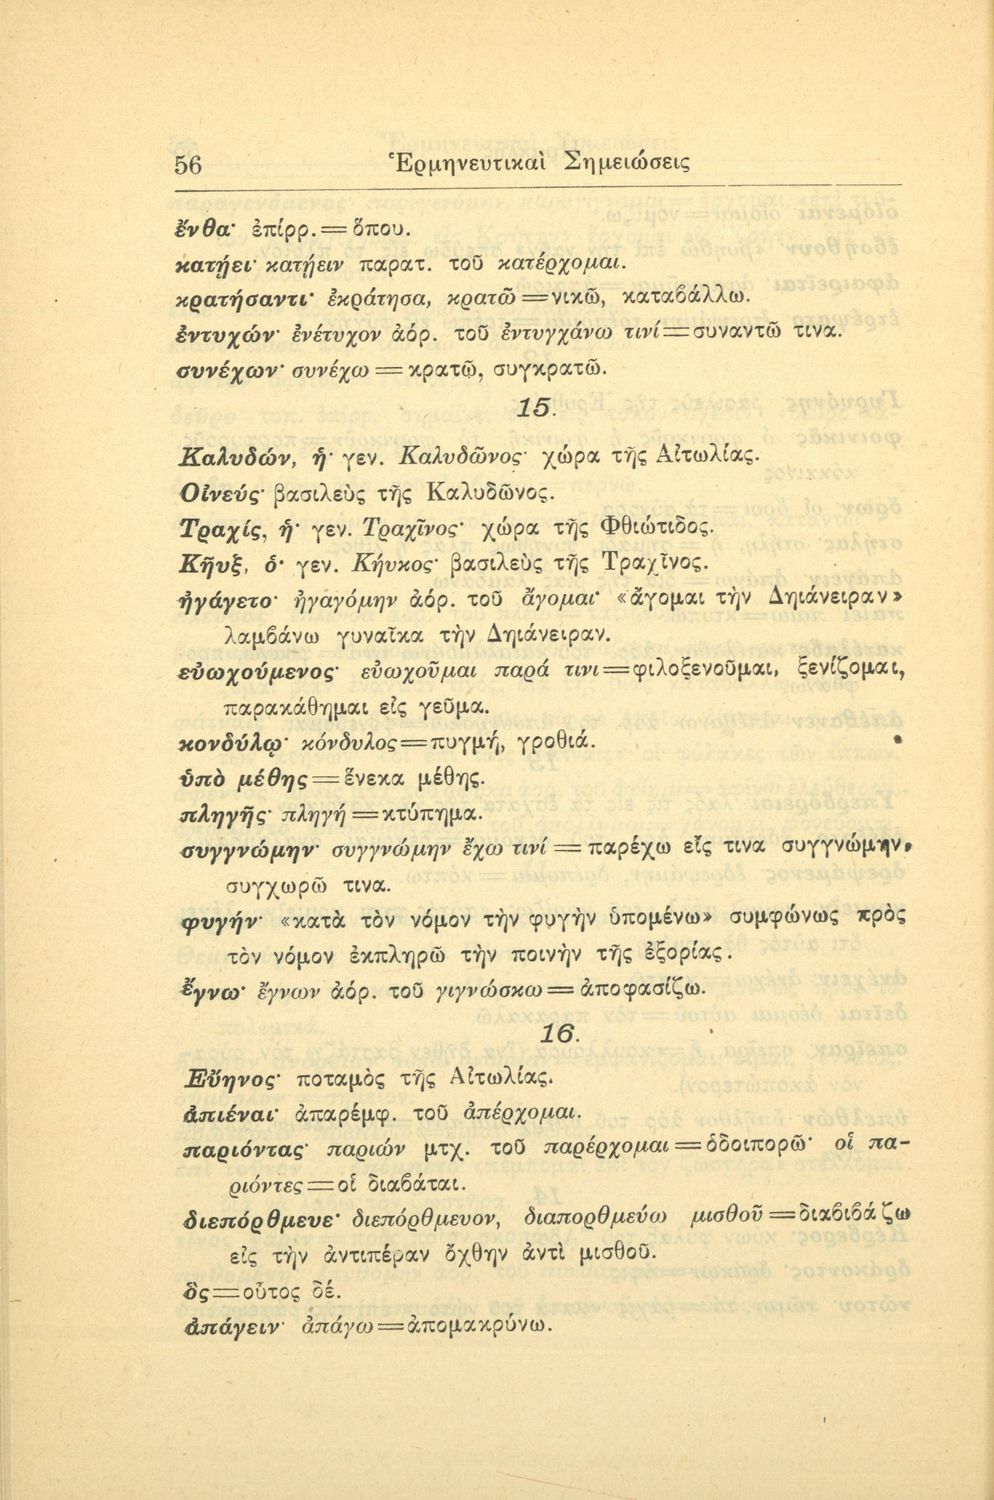 56 Ἑρμηνευτικαὶ Σημειώσεις
ἔνθα· ἐπίρρ.=ὅπου.
κατῄει· κατῄειν παρατ. τοῦ κατέρχομαι.
κρατήσαντι· ἐκράτησα, κρατῶ=νικῶ, καταβάλλω.
ἐντυχών· ἐνέτυχον ἀόρ. τοῦ ἐντυγχάνω τινί=συναντῶ τινα.
συνέχων· συνέχω=κρατῶ, συγκρατῶ.
15.
Καλυδών, ἡ· γεν. Καλυδῶνος· χώρα τῆς Αἰτωλίας.
Οἰνεύς· βασιλεὺς τῆς Καλυδῶνος.
Τραχίς, ἡ· γεν. Τραχῖνος· χώρα τῆς Φθιώτιδος.
Κῆυξ, ὁ· γεν. Κήυκος· βασιλεὺς τῆς Τραχῖνος.
ἠγάγετο· ἠγαγόμην ἀόρ. τοῦ ἄγομαι· «ἄγομαι τὴν Δηιάνειραν»
λαμβάνω γυναῖκα τὴν Δηιάνειραν.
εὐωχούμενος· εὐωχοῦμαι παρά τινι=φιλοξενοῦμαι, ξενίζομαι,
παρακάθημαι εἰς γεῦμα.
κονδύλῳ· κόνδυλος=πυγμή, γροθιά.
ὑπὸ μέθης=ἕνεκα μέθης.
πληγῆς· πληγή=κτύπημα.
συγγνώμην· συγγνώμην ἔχω τινί=παρέχω εἴς τινα συγγνώμην,
συγχωρῶ τινα.
φυγήν· «κατὰ τὸν νόμον τὴν φυγὴν ὑπομένω» συμφώνως πρὸς
τὸν νόμον ἐκπληρῶ τὴν ποινὴν τῆς ἐξορίας.
ἔγνω· ἔγνων ἀόρ. τοῦ γιγνώσκω=ἀποφασίζω.
16.
Εὔηνος· ποταμὸς τῆς Αἰτωλίας.
ἀπιέναι· ἀπαρέμφ. τοῦ ἀπέρχομαι.
παριόντας· παριών μτχ. τοῦ παρέρχομαι=ὁδοιπορῶ· οἱ πα-
ριόντες=οἱ διαβάται.
διεπόρθμευε· διεπόρθμευον, διαπορθμεύω μισθοῦ=διαβιβάζω
εἰς τὴν ἀντιπέραν ὄχθην ἀντὶ μισθοῦ.
ὃς=οὗτος δέ.
ἀπάγειν· ἀπάγω=ἀπομακρύνω.